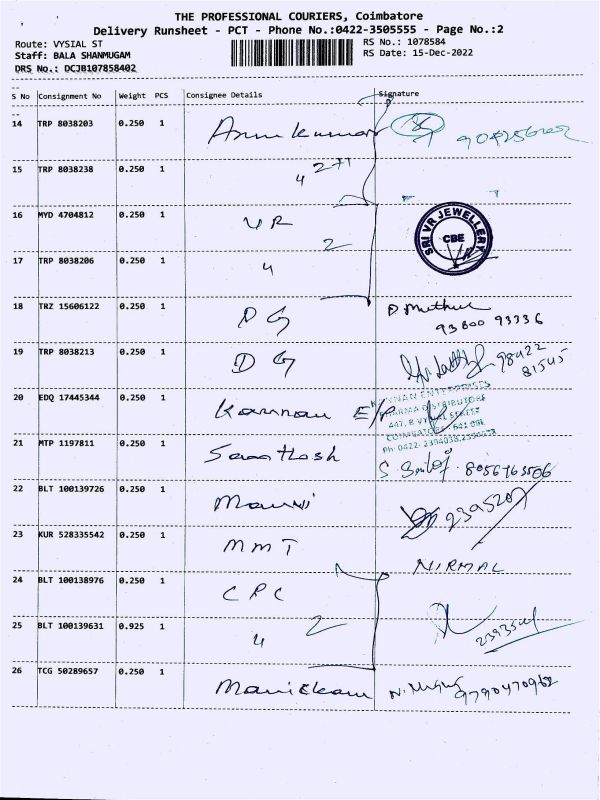 THE PROFESSIONAL COURIERS, Coimbatore
Delivery Runsheet - PCT - Phone No.:0422-3505555 - Page No.:2
Route: VYSIAL ST
RS No.: 1078584
Staff: BALA SHANMUGAM
RS Date: 15-Dec-2022
DRS No.: DCJB107858402
S No Consignment No Weight PCS Consignee Details Signature
14 TRP 8038203 0.250 1 Arunkumar
15 TRP 8038238 0.250 1 " 2+1
16 MYD 4704812 0.250 1 VR
SRI VR JEWELLERY CBE
17 TRP 8038206 0.250 1 " 2
18 TRZ 15606122 0.250 1 DG D. Muthu
93800 93336
19 TRP 8038213 0.250 1 DG 98422
81545
20 EDQ 17445344 0.250 1 Kannan E/P
KANNAN ENTERPRISES
PHARMA DISTRIBUTORS
447, B VYSIAL STREET
COIMBATORE - 641 001
Ph: 0422-2394038,
21 MTP 1197811 0.250 1 Santhosh 8056763506
22 BLT 100139726 0.250 1 2395207
23 KUR 528335542 0.250 1 MMT NIRMAL
24 BLT 100138976 0.250 1 CPC
25 BLT 100139631 0.925 1 " 2
26 TCG 50289657 0.250 1 Manickam 9790470962